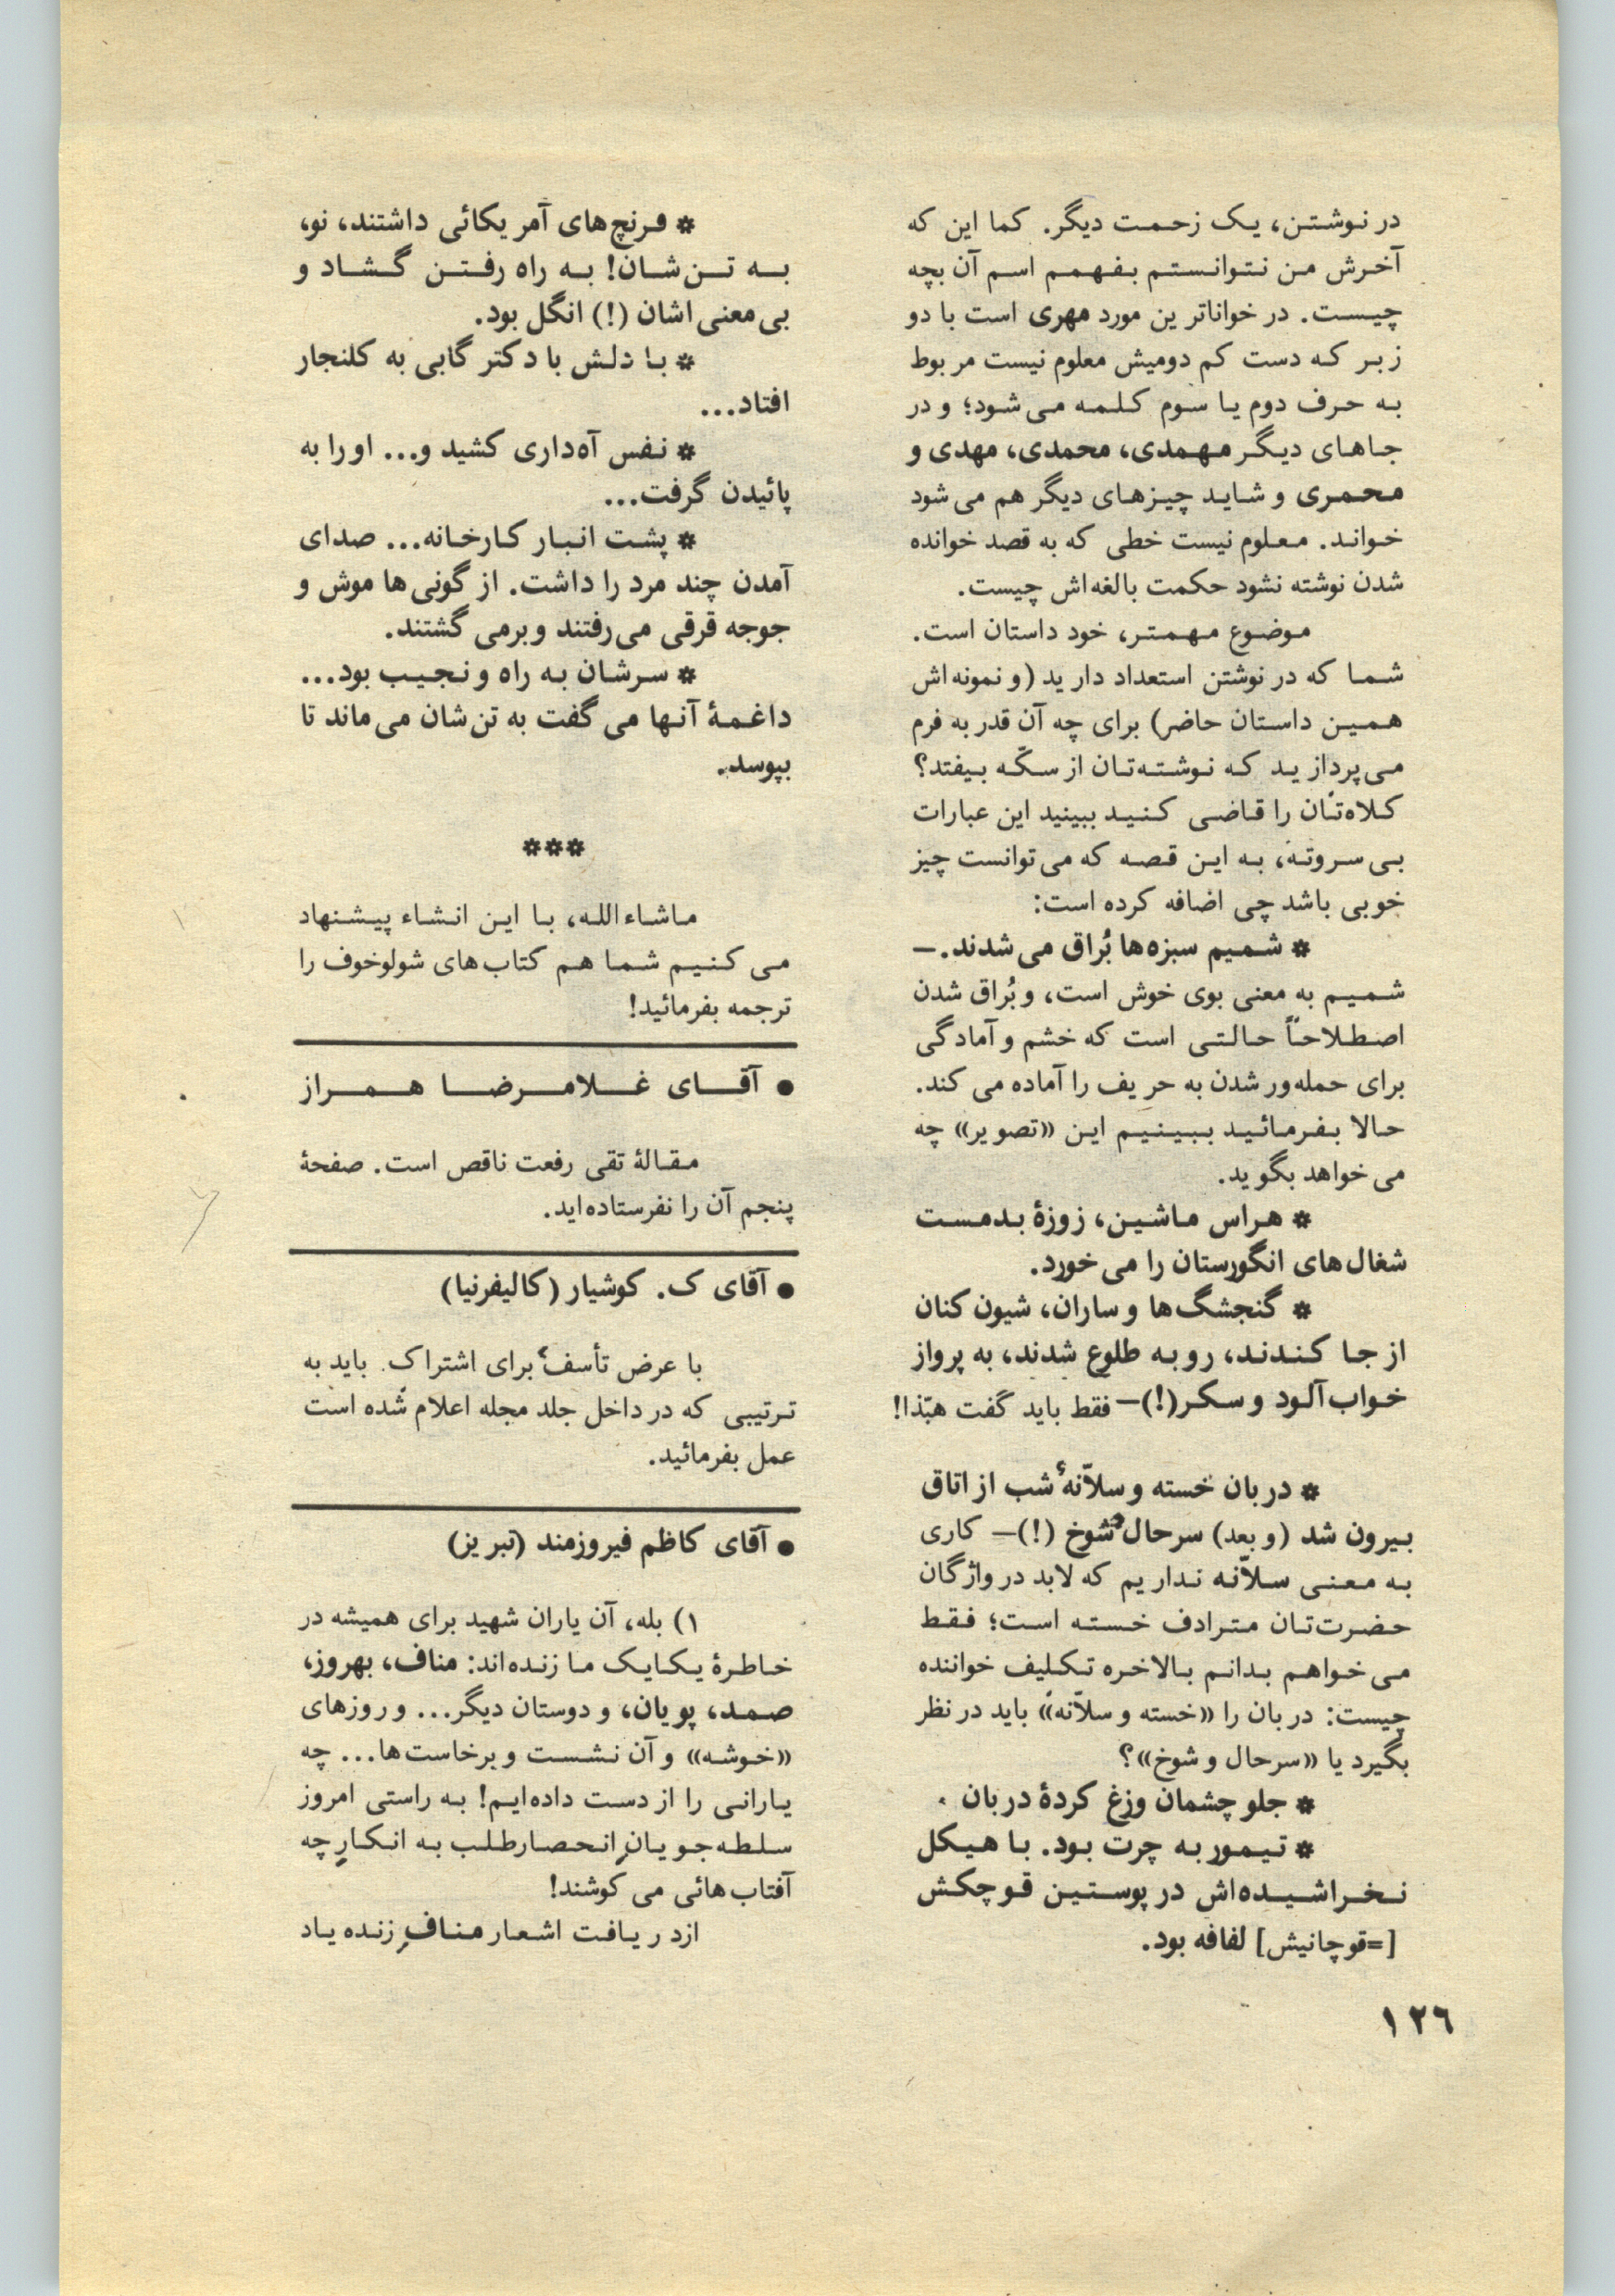 در نوشتن، یک زحمت دیگر. کما این که
آخرش من نتوانستم بفهمم اسم آن بچه
چیست. در خواناترین مورد مهری است با دو
زبر که دست کم دومیش معلوم نیست مربوط
به حرف دوم یا سوم کلمه می‌شود؛ و در
جاهای دیگر مهمدی، محمدی، مهدی و
محمری و شاید چیزهای دیگر هم می‌شود
خواند. معلوم نیست خطی که به قصد خوانده
شدن نوشته نشود حکمت بالغه‌اش چیست.
موضوع مهمتر، خود داستان است.
شما که در نوشتن استعداد دارید (و نمونه‌اش
همین داستان حاضر) برای چه آن قدر به فرم
می‌پردازید که نوشته‌تان از سکّه بیفتد؟
کلاه‌تان را قاضی کنید ببینید این عبارات
بی‌سروته، به این قصه که می‌توانست چیز
خوبی باشد چی اضافه کرده است:
* شمیم سبزه‌ها بُراق می‌شدند. —
شمیم به معنی بوی خوش است، و بُراق شدن
اصطلاحاً حالتی است که خشم و آمادگی
برای حمله‌ور شدن به حریف را آماده می‌کند.
حالا بفرمائید ببینیم این «تصویر» چه
می‌خواهد بگوید.
* هراس ماشین، زوزهٔ بدمست
شغال‌های انگورستان را می‌خورد.
* گنجشگ‌ها و ساران، شیون کنان
از جا کندند، رو به طلوع شدند، به پرواز
خواب‌آلود و سکر(!)— فقط باید گفت هبّذا!
* دربان خسته و سلاّنهٔ شب از اتاق
بیرون شد (و بعد) سرحال و شوخ (!)— کاری
به معنی سلاّنه نداریم که لابد در واژگان
حضرت‌تان مترادف خسته است؛ فقط
می‌خواهم بدانم بالاخره تکلیف خواننده
چیست: دربان را «خسته و سلاّنه» باید در نظر
بگیرد یا «سرحال و شوخ»؟
* جلو چشمان وزغ کردهٔ دربان
* تیمور به چرت بود. با هیکل
نخراشیده‌اش در پوستین قوچکش
[=قوچانیش] لفافه بود.
۱۲۶
* فرنچ‌های آمریکائی داشتند، نو،
به تن‌شان! به راه رفتن گشاد و
بی‌معنی‌اشان (!) انگل بود.
* با دلش با دکتر گابی به کلنجار
افتاد...
* نفس آه‌داری کشید و... او را به
پائیدن گرفت...
* پشت انبار کارخانه... صدای
آمدن چند مرد را داشت. از گونی‌ها موش و
جوجه قرقی می‌رفتند و برمی‌گشتند.
* سرشان به راه و نجیب بود...
داغمهٔ آنها می‌گفت به تن‌شان می‌ماند تا
بپوسد.
***
ماشاءالله، با این انشاء پیشنهاد
می‌کنیم شما هم کتاب‌های شولوخوف را
ترجمه بفرمائید!
● آقای غلامرضا همراز
مقالهٔ تقی رفعت ناقص است. صفحهٔ
پنجم آن را نفرستاده‌اید.
● آقای ک. کوشیار (کالیفرنیا)
با عرض تأسف، برای اشتراک. باید به
ترتیبی که در داخل جلد مجله اعلام شده است
عمل بفرمائید.
● آقای کاظم فیروزمند (تبریز)
۱) بله، آن یاران شهید برای همیشه در
خاطرهٔ یکایک ما زنده‌اند: مناف، بهروز،
صمد، پویان، و دوستان دیگر... و روزهای
«خوشه» و آن نشست و برخاست‌ها... چه
یارانی را از دست داده‌ایم! به راستی امروز
سلطه‌جویانِ انحصارطلب به انکارِ چه
آفتاب‌هائی می‌کوشند!
از دریافت اشعار منافِ زنده یاد